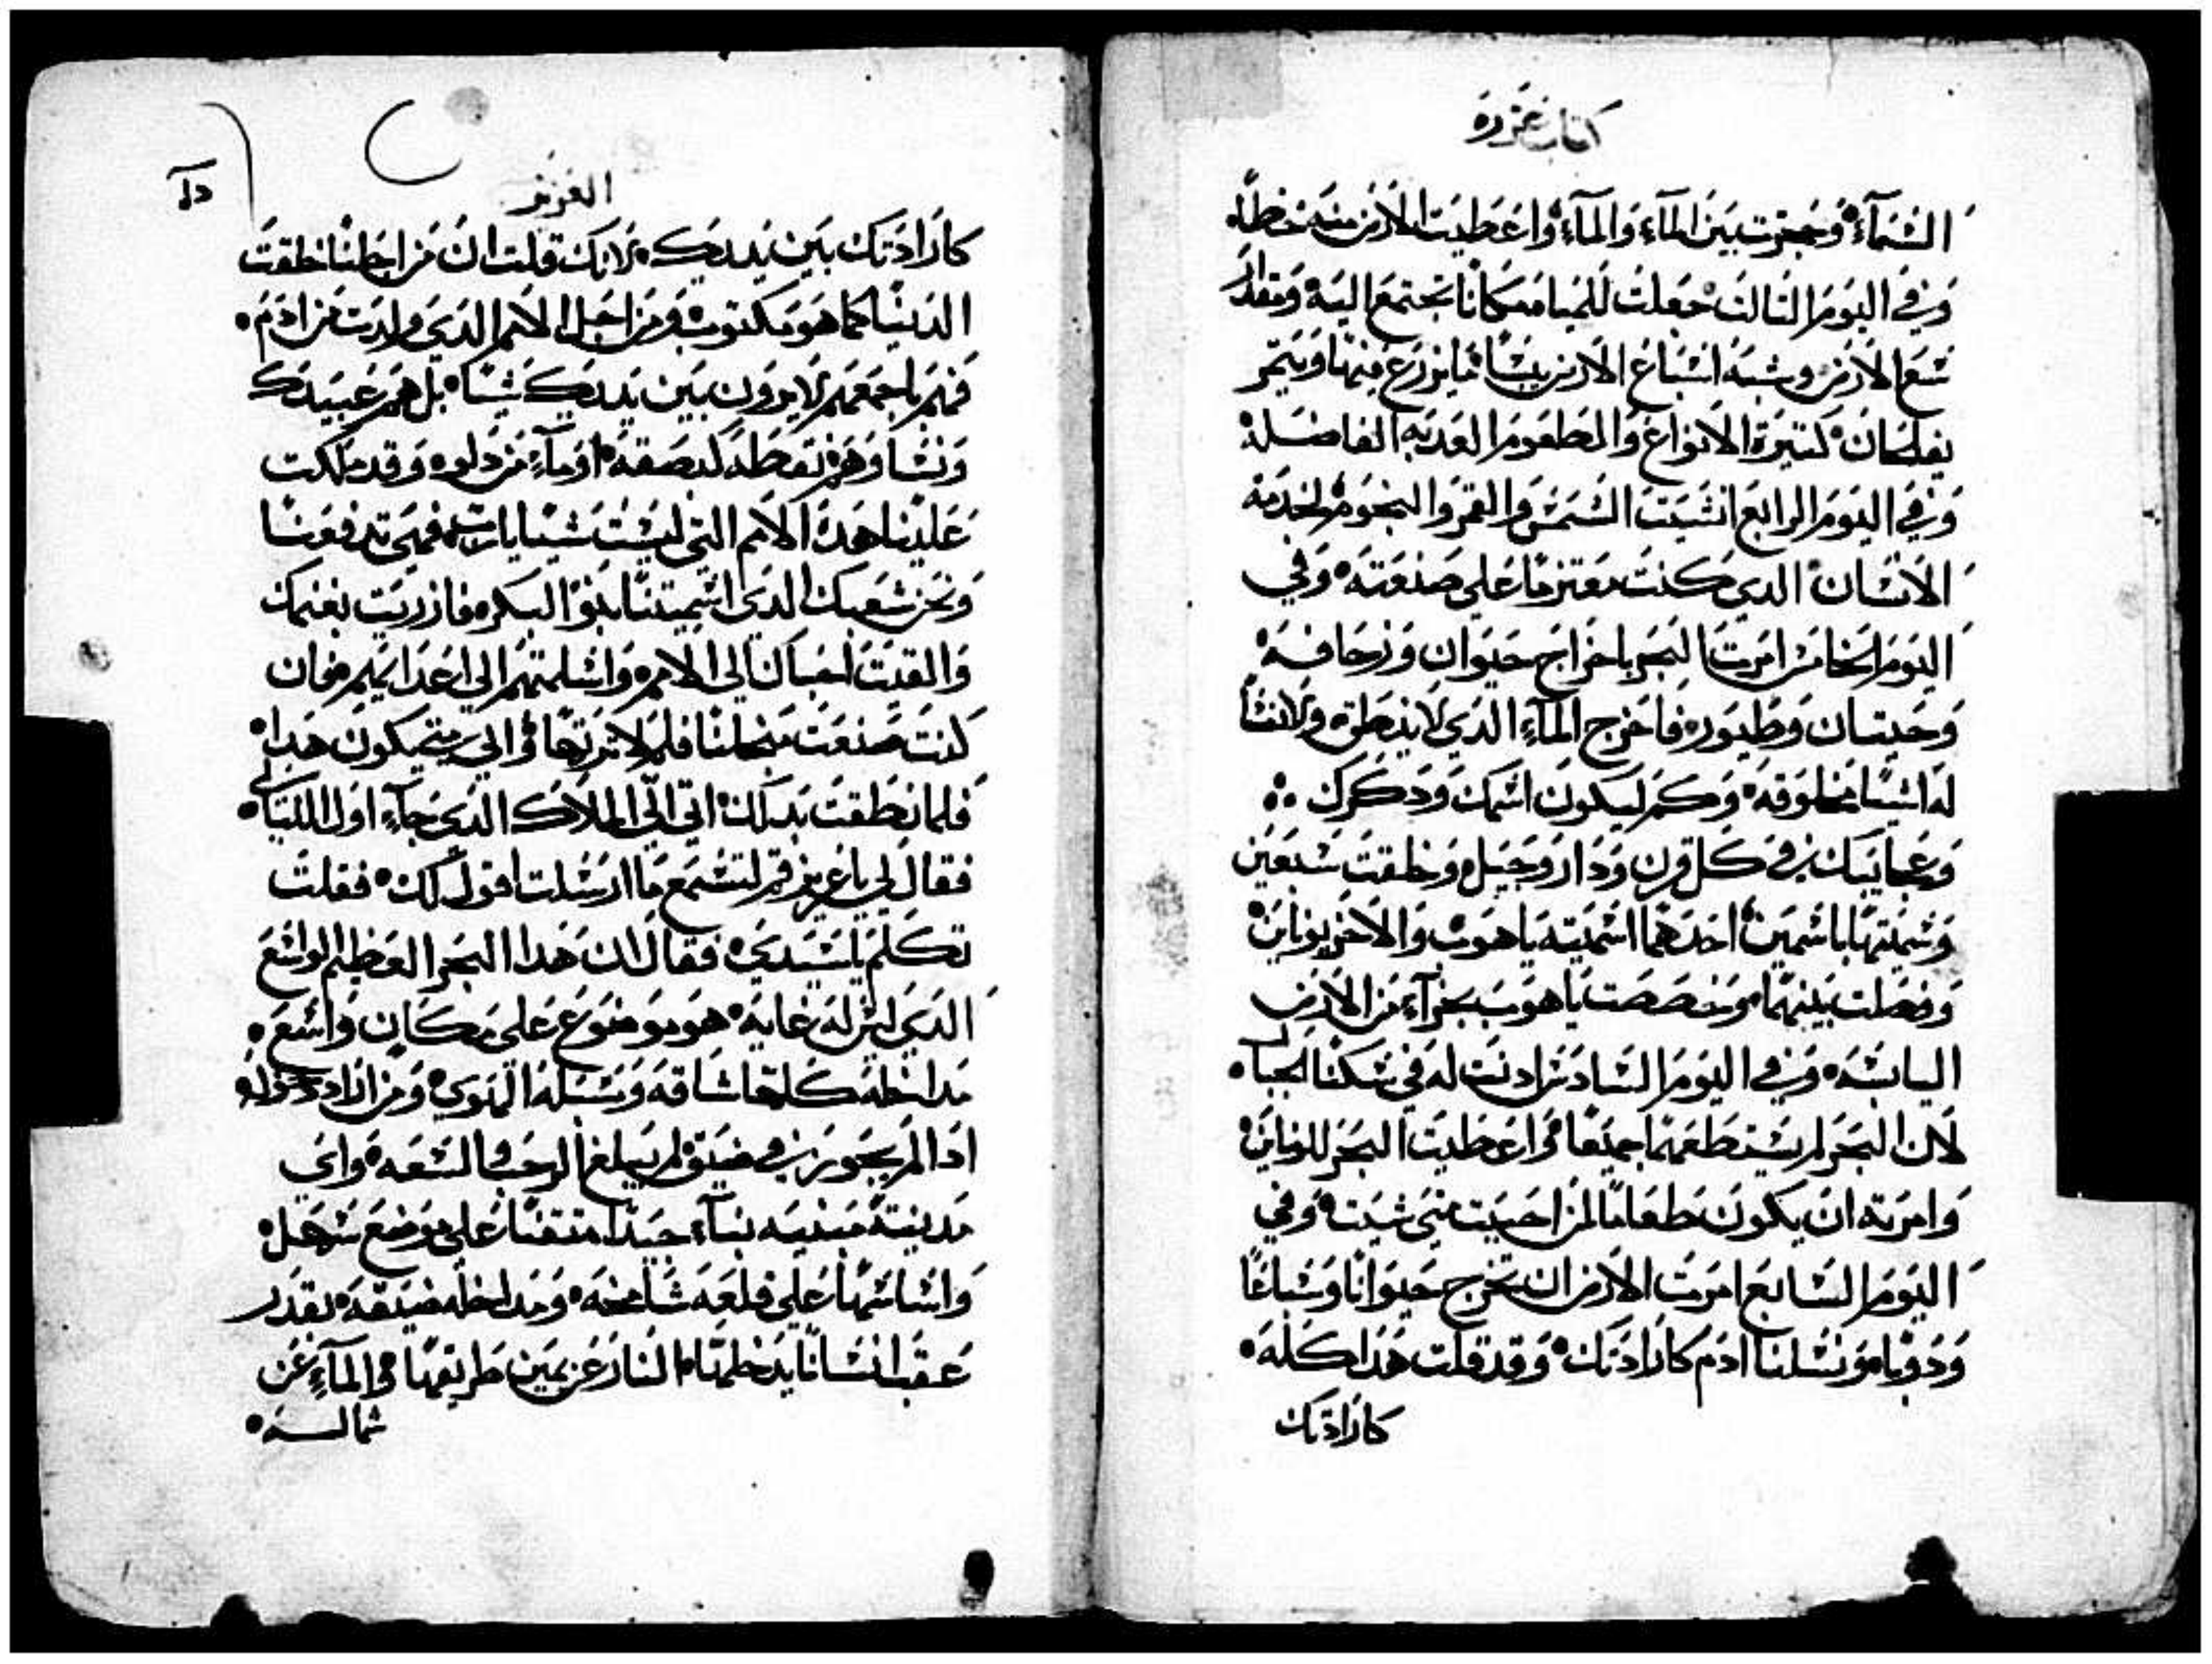 كتاب عزرة
السَمآء وَحجزت بَين المآء وَالمآء وَاعَطيَت الارض منه حظاً
وَفي اليَومَ التالت جَعلت للميا مَكانا تجتمعَ اليَه وَمقدار
سَعَ الارض وشبه اشباع الارض يبسًا ما يزرع منها وَيتمر
كتيرَة الانواع وَالمطعَومَ العَدبه الفاضله
وَفي اليَومَ الرابع انشيَت الشمَس والقمرَ والنجَومَ لخدمة
الانسَان الدي كنت مَعَتزمًا علي صَنعَتَه وَفي
اليَومَ الخامَس امَرت البَحر باخرَاج حَيوان وَزحافه
وَحيتان وَطيَور فاخرج المآء الدَي لا ينطق ولا نشا
له اشيَا مخلوَقه وَكم ليكون اسمك وَدكرك
وَعجايبك في كل قرن وَدَار وَجيل وَخلقت سَبعَين
وَسَميتها باسَمَين احَدَهما اسَميته ياهوَب وَالاخر يوناين
وَفصَلت بَينهمَا وَخصَصَت ياهوَب بجزآء من الارض
اليابسَه وَفي اليَومَ السَادسَ ادنت له في سَكنا الجبال
لان البَحر لم يسَتطعهَما جميَعًا وَاعَطيت البَحر للوناين
وَامرَته ان يكون طعَامًا لمن احبَيت متي شيَت وَفي
اليَومَ السَابعَ امَرت الارض ان تخرج حَيوَانًا وَسَباعًا
وَدوَابا وَنسَلنا ادَم كارَادتك وَقد قلت هَدا كله
كارَادتك
العزيز
دل
كارَادَتك بَين يَديَك لانك قلت ان مَن اجلنا خلقت
الدَنيَا كما هوَ مَكتوب وَمَن اجل الامم الدَي ولدَت مَن ادَم
فهَم باجمَعَهَم لا يرَون بَين يَديَك شيَا بل همَ عَبيَدَك
وَنشاوَهَم نقطة لبصَقه اوَ مَآء مَن دَلو وَقد مَلكت
عَلينا هَدَه الامم التي ليسَت شيَا فهَي تدَفعَنا
وَنحَن شعَبك الدَي اسَميتنا بنوَا البكر فازدريَت بغنمك
وَالقيَت احَبابك الي الامم وَاسَلمتهَم الي اعَدَايهم فان
كنت صَنعَت مَن اجلنا فلم لا نرَتها وَالي متي يكون هَدا
فلما نطقت بَدلك اتي الي الملاك الدَي جَآء اوَل الليَالي
فقال لي ياعَزيز قم لتسَمَع مَا ارسَلت اقول لك فقلت
تكلم ياسَيَدي فقال ان هَدا البَحر العَظيم الواسَع
الدَي ليسَ له غايَه هوَ موَضوَع علي مَكان وَاسَع
مَداخله كلها شاقه وَسَبَله المهوَي وَمَن ارَاد دَخوَله
ادَا لم يجوَز في ضيَق لم يَبلغ الرحَب والسَعَه وَاي
مَدينَة مَبَنيَه بناء جيَدا متقنا علي موَضعَ سَهل
وَاسَاسَهَا علي قلعَه شامخه وَمَداخله ضيَقه بقدَر
عَقب انسَانا يدَخلها النار عَن يمَين طريقها وَالمآء عَن
شماله